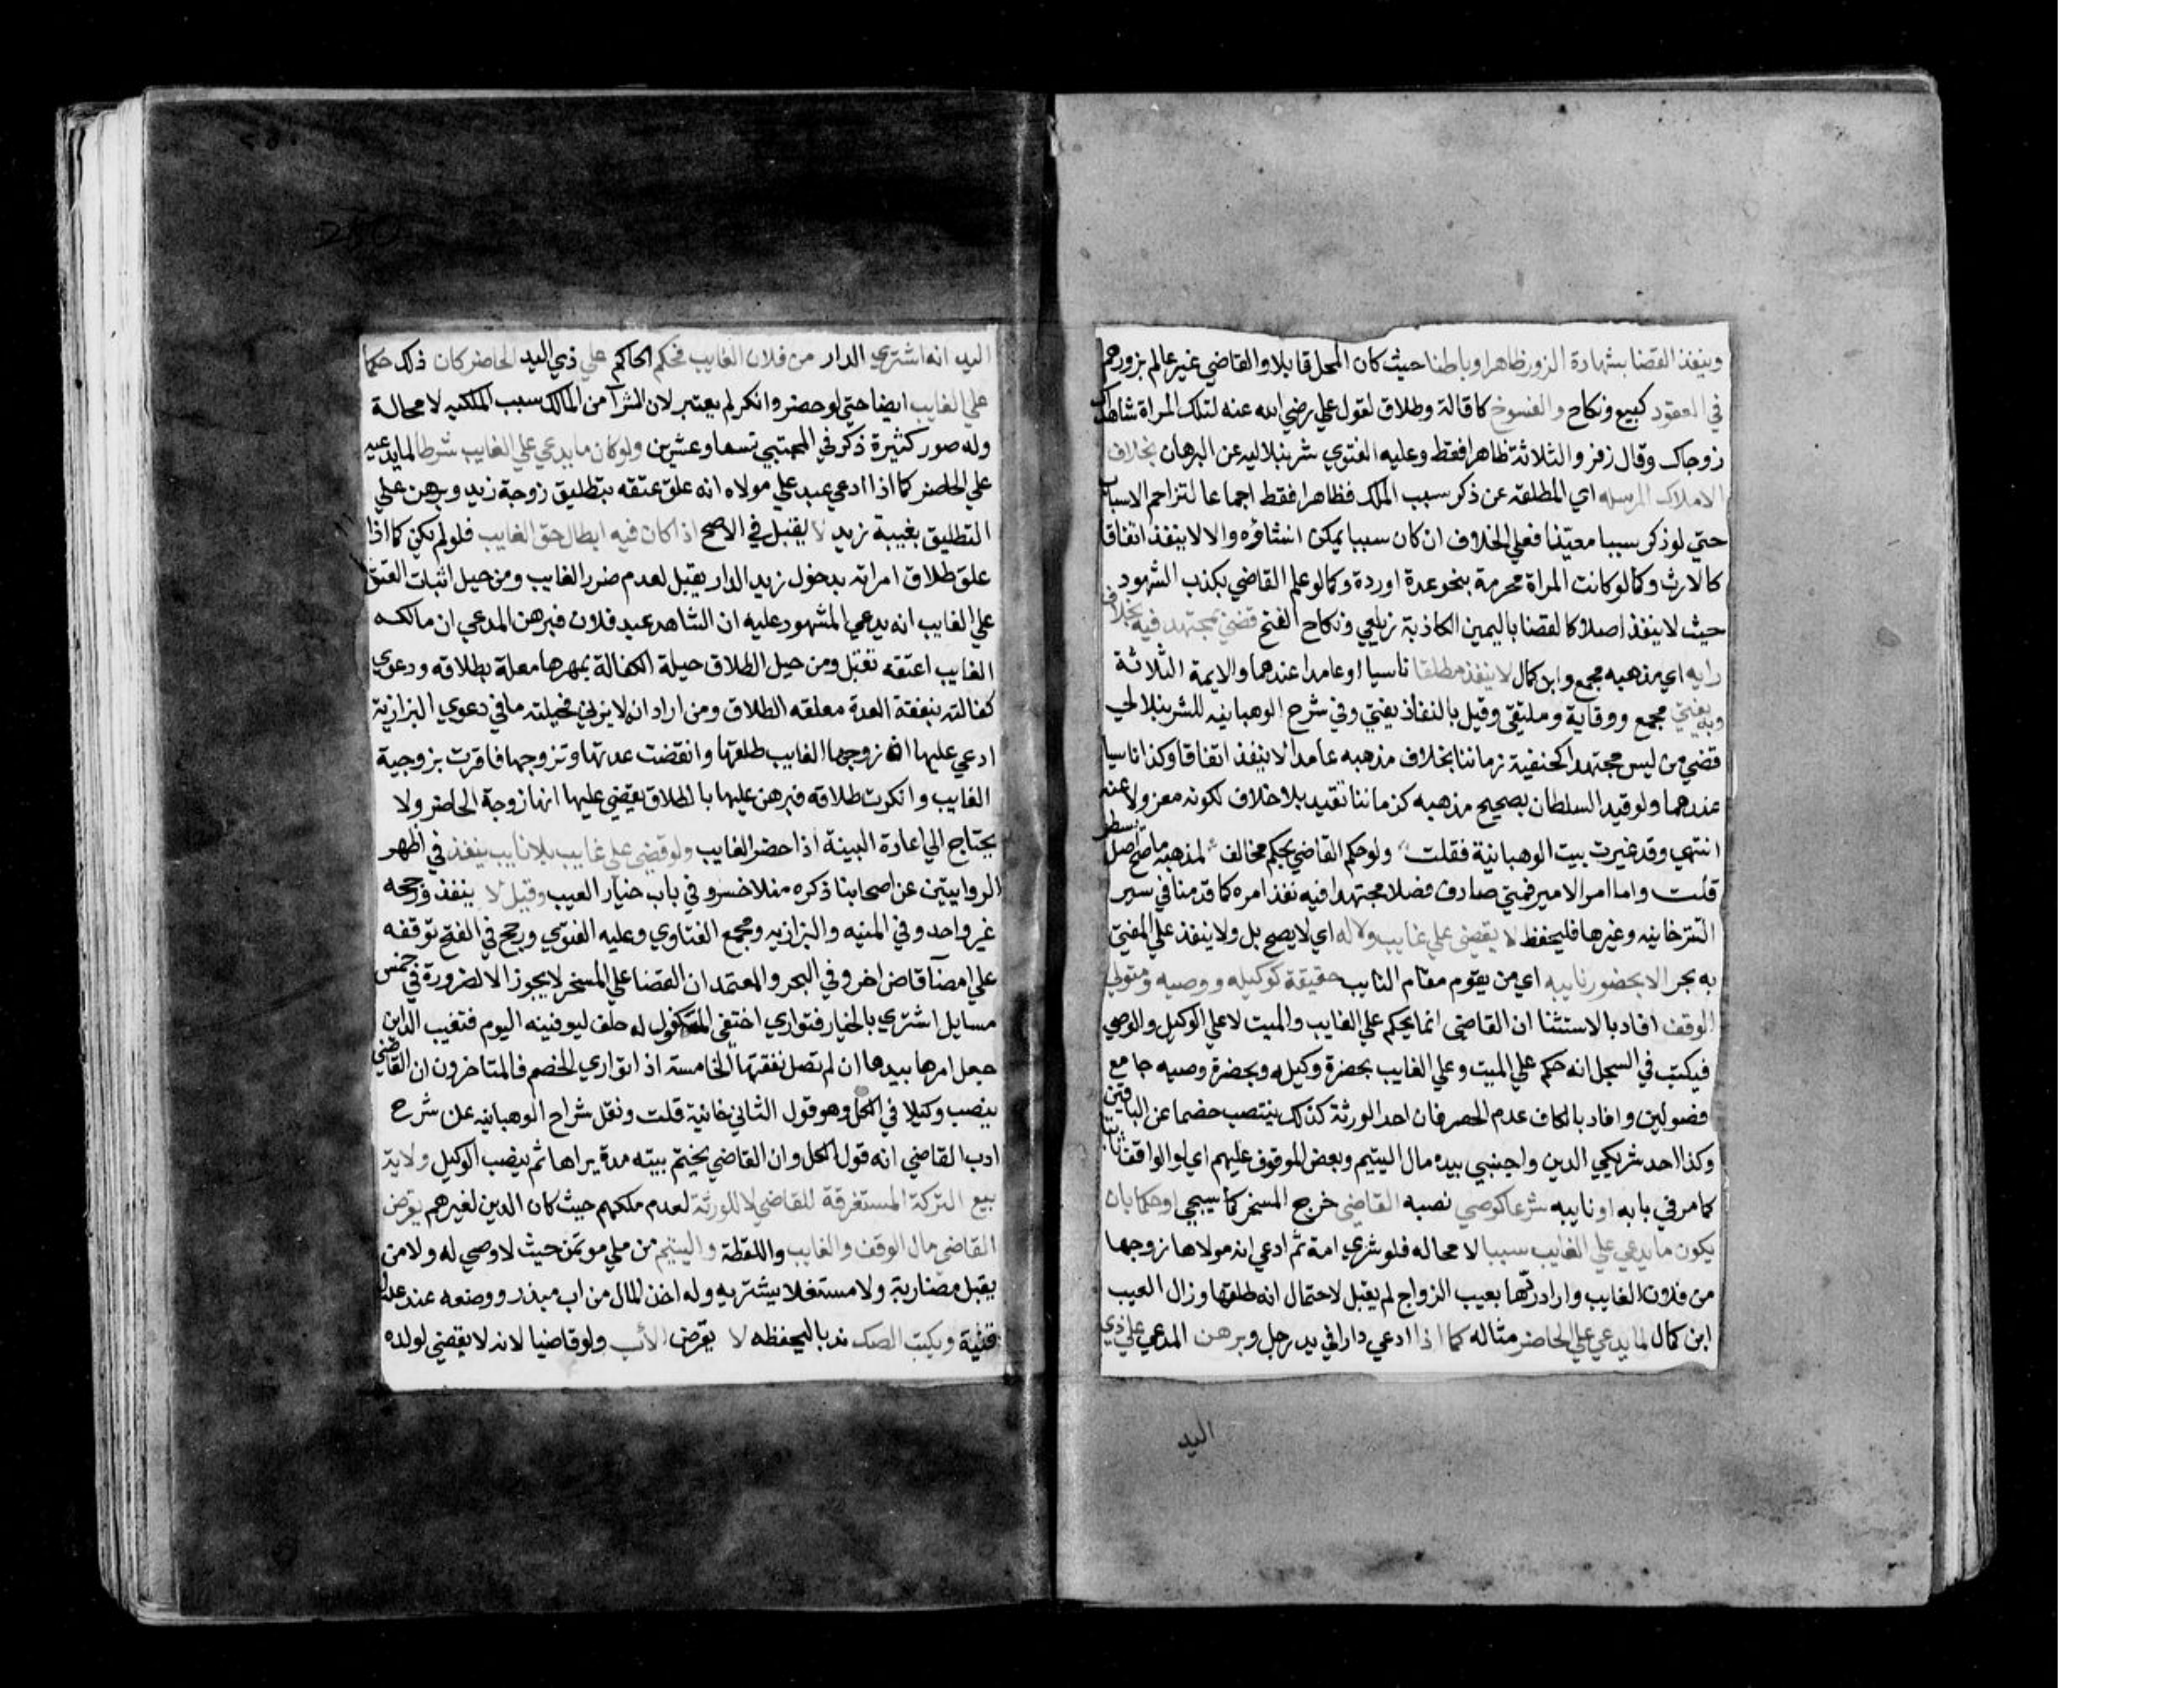 وينفذ القضا بشهادة الزور ظاهرا وباطنا حيث كان المحل قابلا والقاضي غير عالم بزورهم
في العقود كبيع ونكاح والفسوخ كاقالة وطلاق لقول علي رضي الله عنه لتلك المراة شاهداك
زوجاك وقال زفر والثلاثة ظاهرا فقط وعليه الفتوي شرنبلاليه عن البرهان بخلاف
الاملاك المرسله اي المطلقة عن ذكر سبب الملك فظاهرا فقط اجماعا لتزاحم الاسباب
حتي لو ذكر سببا معينا فعلي الخلاف ان كان سببا يمكن انشاؤه والا لا ينفذ اتفاقا
كالارث وكما لو كانت المراة محرمة بنحو عدة اوردة وكما لو علم القاضي بكذب الشهود
حيث لا ينفذ اصلا كالقضا باليمين الكاذبة زيلعي ونكاح الفتح قضي بمجتهد فيه بخلاف
رايه اي مذهبه مجمع وابن كمال لا ينفذ مطلقا ناسيا او عامدا عندهما والايمة الثلاثة
وبه يفتي مجمع ووقاية وملتقي وقيل بالنفاذ يفتي وفي شرح الوهبانيه للشرنبلالي
قضي من ليس مجتهدا كحنفية زماننا بخلاف مذهبه عامدا لا ينفذ اتفاقا وكذا ناسيا
عندهما ولو قيد السلطان بصحيح مذهبه كزماننا تقيد بلا خلاف لكونه معزولا عنه
انتهي وقد غيرت بيت الوهبانية فقلت ولو حكم القاضي بحكم مخالف لمذهبه ما صح اصلا يسطر
قلت واما امر الامير فمتي صادف فضلا مجتهدا فيه نفذ امره كما قدمنا في سير
التترخانيه وغيرها فليحفظ لا يقضي علي غايب ولا له اي لا يصح بل ولا ينفذ علي المفتي
به بحر الا بحضور نايبه اي من يقوم مقام النايب حقيقة كوكيله ووصيه ومتولي
الوقف افاد بالاستثنا ان القاضي انما يحكم علي الغايب والميت لا علي الوكيل والوصي
فيكتب في السجل انه حكم علي الميت وعلي الغايب بحضرة وكيله وبحضرة وصيه جامع
فضولين وافاد بالكاف عدم الحصر فان احد الورثة كذلك ينتصب خصما عن الباقين
وكذا احد شريكي الدين واجنبي بيده مال اليتيم وبعض الموقوف عليهم اي لو الواقف ثابتا
كما مر في بابه او نايبه شرعا كوصي نصبه القاضي خرج المسخر كما سيجي او حكما بان
يكون ما يدعي علي الغايب سببا لا محاله فلو شري امة ثم ادعي ان مولاها زوجها
من فلان الغايب واراد ردها بعيب الزواج لم يقبل لاحتمال انه طلقها وزال العيب
ابن كمال لما يدعي علي الحاضر مثاله كما اذا ادعي دارا في يد رجل وبرهن المدعي علي ذي
اليد
اليد انه اشتري الدار من فلان الغايب فحكم الحاكم علي ذي اليد الحاضر كان ذلك حكما
علي الغايب ايضا حتي لو حضر وانكر لم يعتبر لان الشرآ من المالك سبب الملكيه لا محالة
وله صور كثيرة ذكر في المجتبي تسعا وعشرين ولو كان ما يدعي علي الغايب شرطا لما يدعيه
علي الحاضر كما اذا ادعي عبد علي مولاه انه علق عتقه بتطليق زوجة زيد وبرهن علي
التطليق بغيبة زيد لا يقبل في الاصح اذا كان فيه ابطال حق الغايب فلو لم يكن كما اذا
علق طلاق امراته بدخول زيد الدار يقبل لعدم ضرر الغايب ومن حيل اثبات العتق
علي الغايب انه يدعي المشهود عليه ان الشاهد عبد فلان فبرهن المدعي ان مالكه
الغايب اعتقه تقبل ومن حيل الطلاق حيلة الكفالة بمهرها معلة بطلاقه ودعوي
كفالته بنفقة العدة معلقه الطلاق ومن اراد ان لا يزني فحيلته ما في دعوي البزازية
ادعي عليها ان زوجها الغايب طلقها وانقضت عدتها وتزوجها فاقرت بزوجية
الغايب وانكرت طلاقه فبرهن عليها بالطلاق يقضي عليها انها زوجة الحاضر ولا
يحتاج الي اعادة البينة اذا حضر الغايب ولو قضي علي غايب بلا نايب ينفذ في اظهر
الروايتين عن اصحابنا ذكره منلا خسرو في باب خيار العيب وقيل لا ينفذ ورجحه
غير واحد وفي المنيه والبزازيه ومجمع الفتاوي وعليه الفتوي ورجح في الفتح توقفه
علي امضآ قاض اخر وفي البحر والمعتمد ان القضا علي المسخر لا يجوز الا لضرورة في خمس
مسايل اشتري بالخيار فتواري اختفي المكفول له حلف ليوفينه اليوم فتغيب الداين
جعل امرها بيدها ان لم تصل نفقتها الخامسة اذا تواري الخصم فالمتاخرون ان القاضي
ينصب وكيلا في الكل وهو قول الثاني خانية قلت ونقل شراح الوهبانيه عن شرح
ادب القاضي انه قول الكل وان القاضي يختم بيته مدة يراها ثم ينصب الوكيل ولاية
بيع التركة المستغرقة للقاضي لا للورثة لعدم ملكهم حيث كان الدين لغيرهم يقرض
القاضي مال الوقف والغايب واللقطة واليتيم من ملي موتمن حيث لا وصي له ولا من
يقبل مضاربة ولا مستغلا يشتريه وله اخذ المال من اب مبذر ووضعه عند عدل
قنية ويكتب الصك ندبا ليحفظه لا يقرض الاب ولو قاضيا لانه لا يقضي لولده